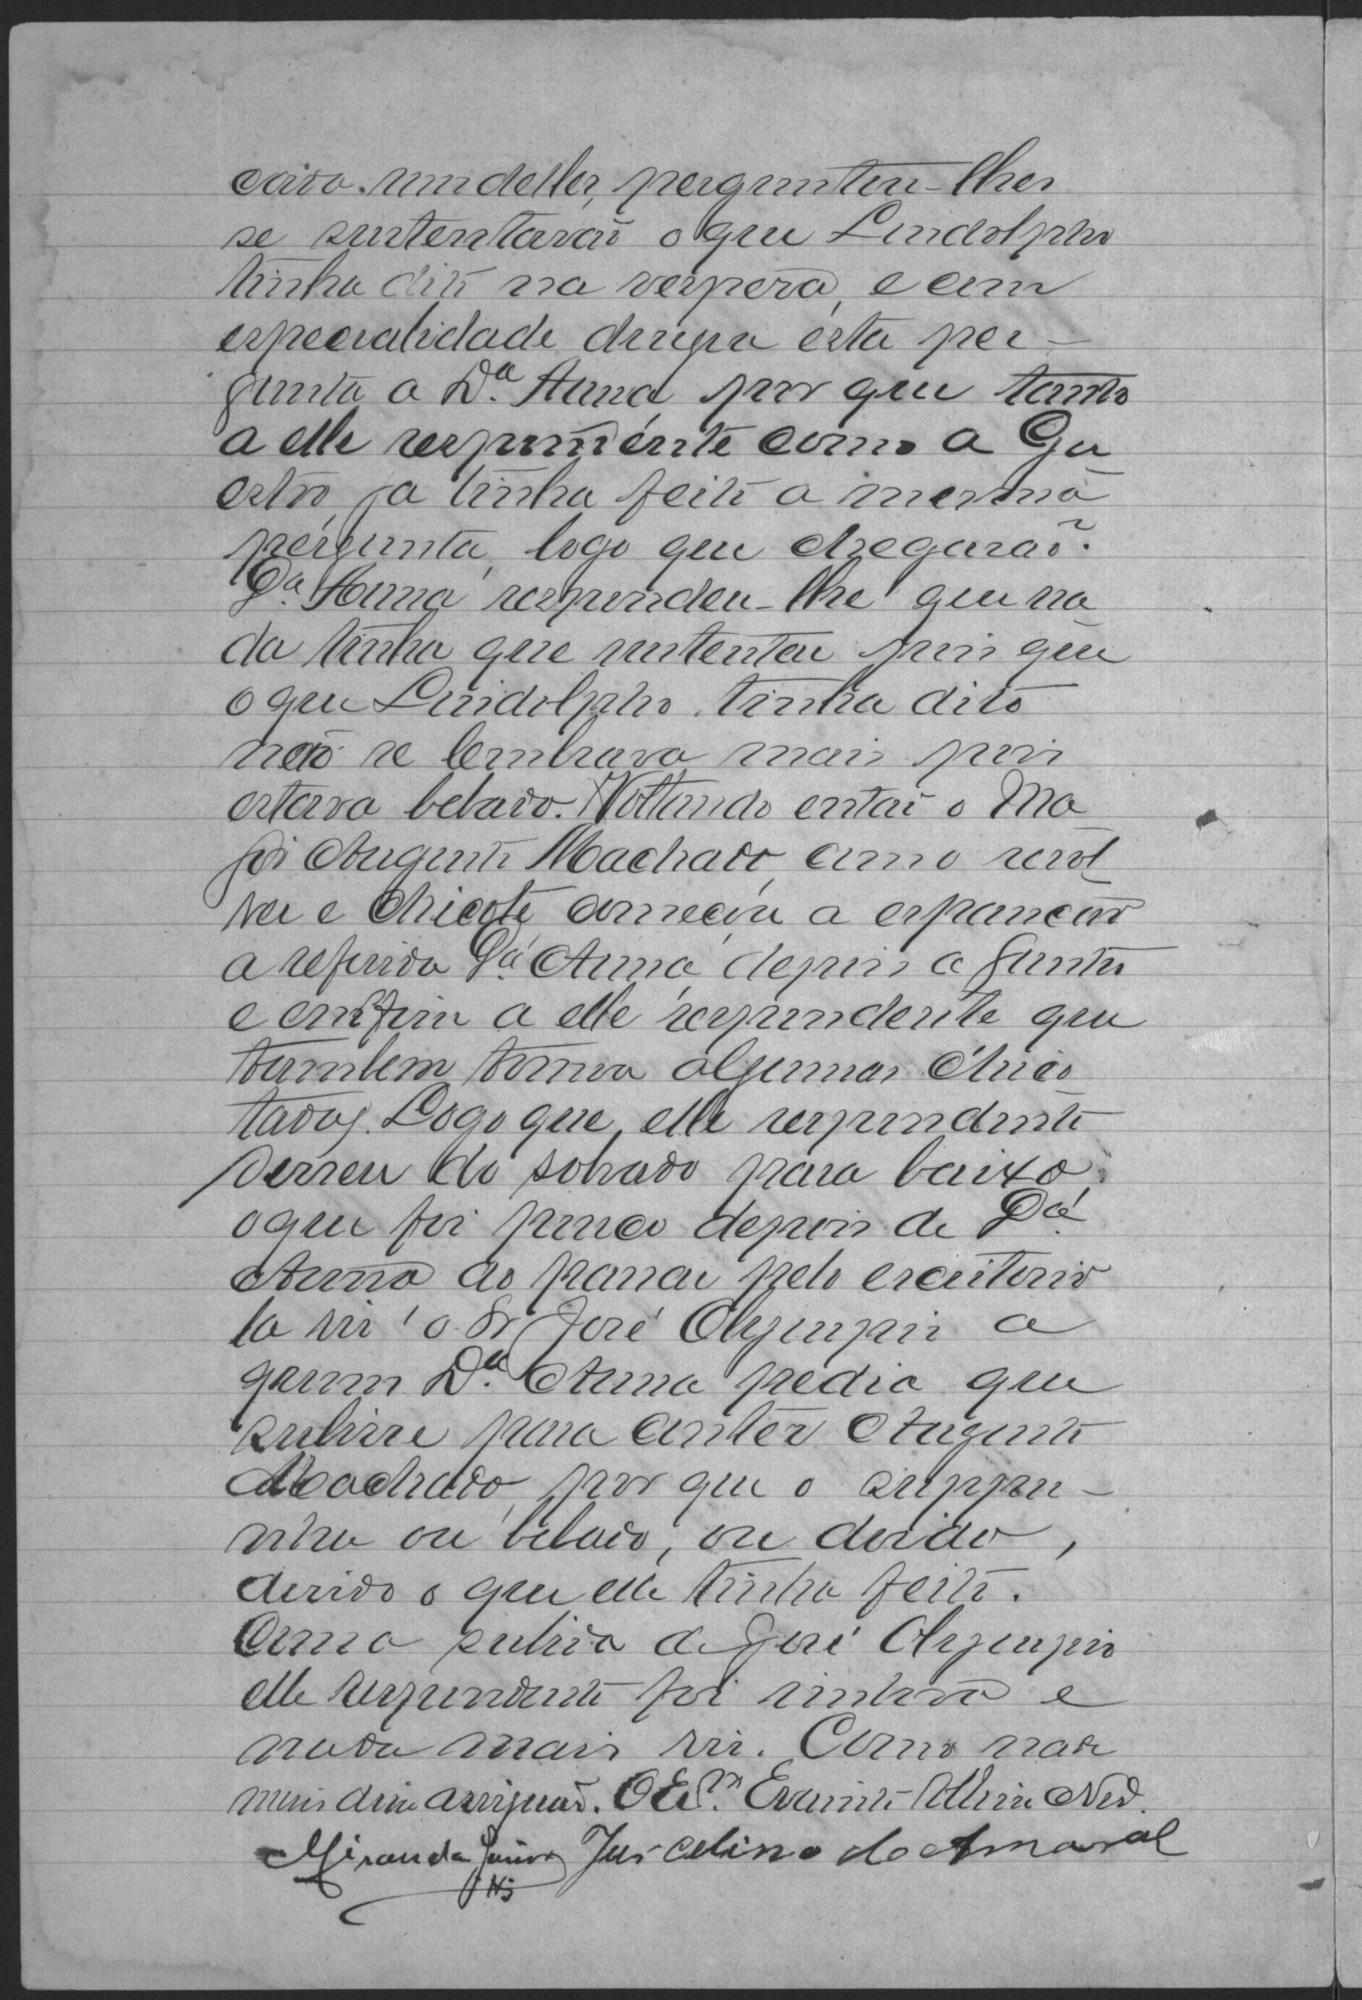 cada um delles, perguntou-lhes
se sustentavaõ o que Lindolpho
tinha dito na vespera, e com
especialidade dirigiu esta per-
gunta a D.ª Anna, por que tanto
a elle respondente como a Gu
estvo, ja tinha feito a mesma
pergunta, logo que chegaraõ.
D.ª Anna respondeu-lhe que na
da tinha que sustentar pois que
o que Lindolpho tinha dito
naõ se lembrava mais pois
estava bebado. Voltando entaõ o Ma
jor Augusto Machado, com o revol
ver e chicote, começou a espancar
a referida D.ª Anna, depois a Guntes
e emfim a elle respondente que
tambem tomou algumas chico
tadas. Logo que, elle respondente
correu do sobrado para baixo,
o que foi pouco depois de D.ª
Anna ao passar pelo escriptorio
la viu o Sr José Olympio a
quem D.ª Anna pedia que
subisse para conter Augusto
Machado, por que o suppu-
nha ou bebado, ou doido,
devido o que elle tinha feito.
Com a subida de José Olympio
elle respondente foi embora e
nada mais viu. Como nada
mais disse assignaõ. O Es.m Evaristo
Miranda Junior Juscelino do Amaral